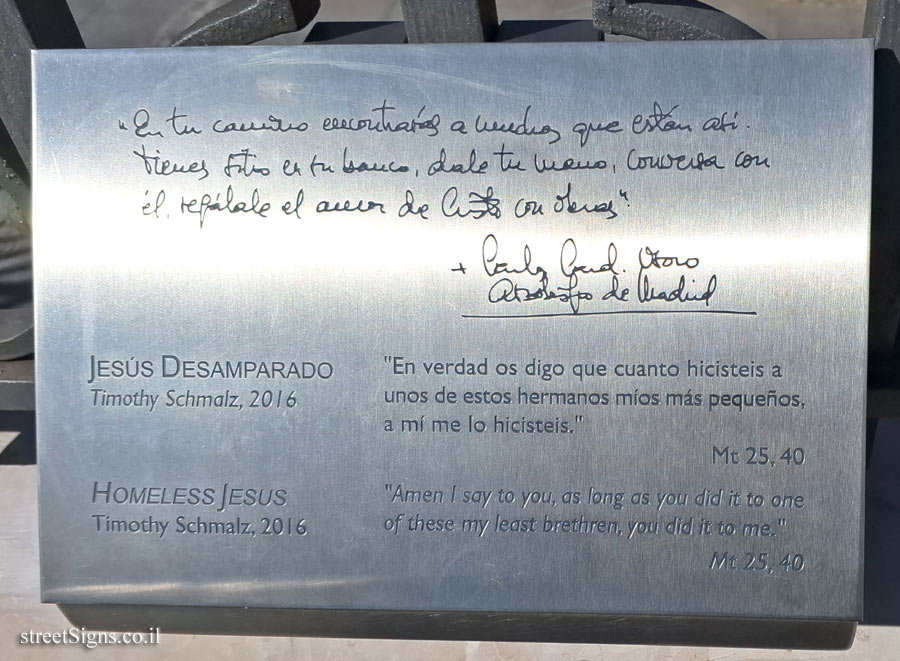 "En tu camino encontrarás a muchos que están así.
tienes sitio en tu banco, dale tu mano, conversa con
él, regálale el amor de Cristo con obras".
+ Carlos Card. Osoro
Arzobispo de Madrid
JESÚS DESAMPARADO
Timothy Schmalz, 2016
"En verdad os digo que cuanto hicisteis a
unos de estos hermanos míos más pequeños,
a mí me lo hicisteis."
Mt 25, 40
HOMELESS JESUS
Timothy Schmalz, 2016
"Amen I say to you, as long as you did it to one
of these my least brethren, you did it to me."
Mt 25, 40
streetSigns.co.il